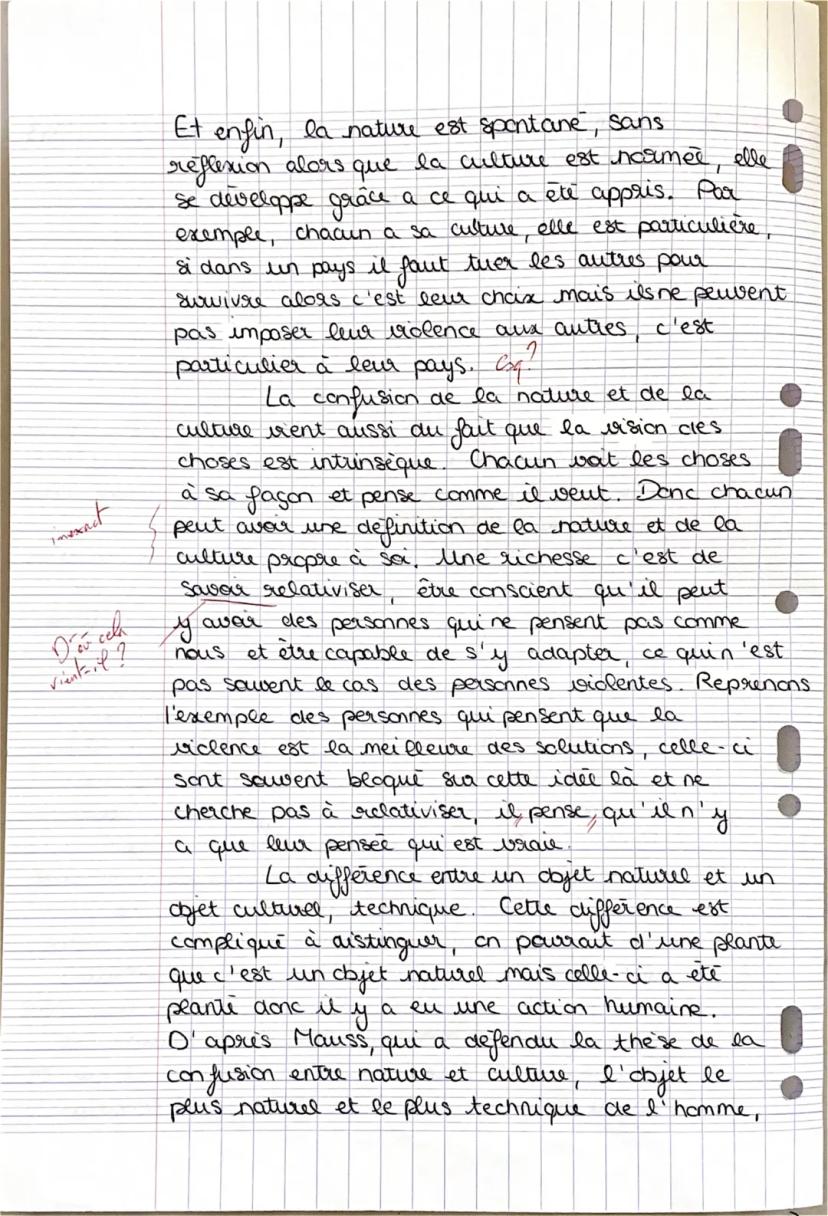 Et enfin, la nature est spontané, sans
réflexion alors que la culture est normée, elle
se développe grâce a ce qui a été appris. Par
exemple, chacun a sa culture, elle est particulière,
si dans un pays il faut tuer les autres pour
survivre alors c'est leur choix mais ils ne peuvent
pas imposer leur violence aux autres, c'est
particulier à leur pays.
La confusion de la nature et de la
culture vient aussi du fait que la vision des
choses est intrinsèque. Chacun voit les choses
à sa façon et pense comme il veut. Donc chacun
inexact
peut avoir une définition de la nature et de la
culture propre à soi. Une richesse c'est de
savoir relativiser, être conscient qu'il peut
y avoir des personnes qui ne pensent pas comme
D'où cela
vient-il ?
nous et être capable de s'y adapter, ce qui n'est
pas souvent le cas des personnes violentes. Reprenons
l'exemple des personnes qui pensent que la
violence est la meilleure des solutions, celle-ci
sont souvent bloqué sur cette idée là et ne
cherche pas à relativiser, il pense qu'il n'y
a que leur pensée qui est vraie.
La différence entre un objet naturel et un
objet culturel, technique. Cette différence est
compliqué à distinguer, on pourrait d'une plante
que c'est un objet naturel mais celle-ci a été
planté donc il y a eu une action humaine.
D'après Mauss, qui a défendu la thèse de la
confusion entre nature et culture, l'objet le
plus naturel et le plus technique de l'homme,